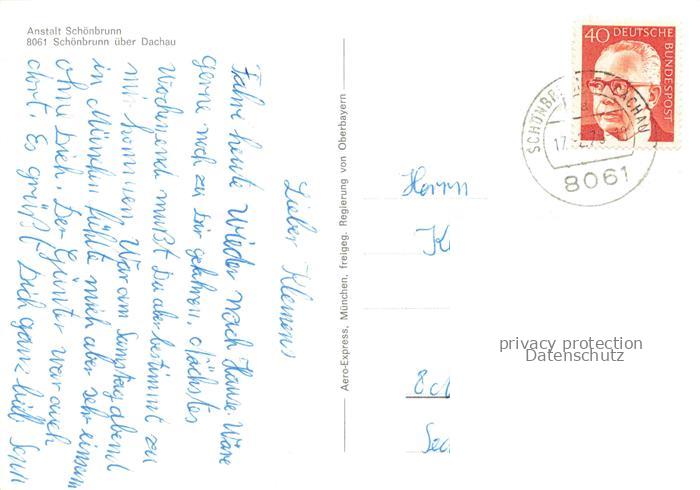 Anstalt Schönbrunn
8061 Schönbrunn über Dachau
Lieber Klemens
Fahre heute wieder nach Hause. Wäre
gerne noch zu Dir gefahren, Nächstes
Wochenend mußt Du aber bestimmt zu
mir kommen. War am Samstag abend
in München fühlte mich aber sehr einsam
ohne Dich. Der Günter war auch
dort. Es grüßt Dich ganz lieb
Aero-Express, München, freigeg. Regierung von Oberbayern
40 DEUTSCHE
BUNDESPOST
SCHÖNBRUNN DACHAU
8061
Herrn
K
privacy protection
Datenschutz